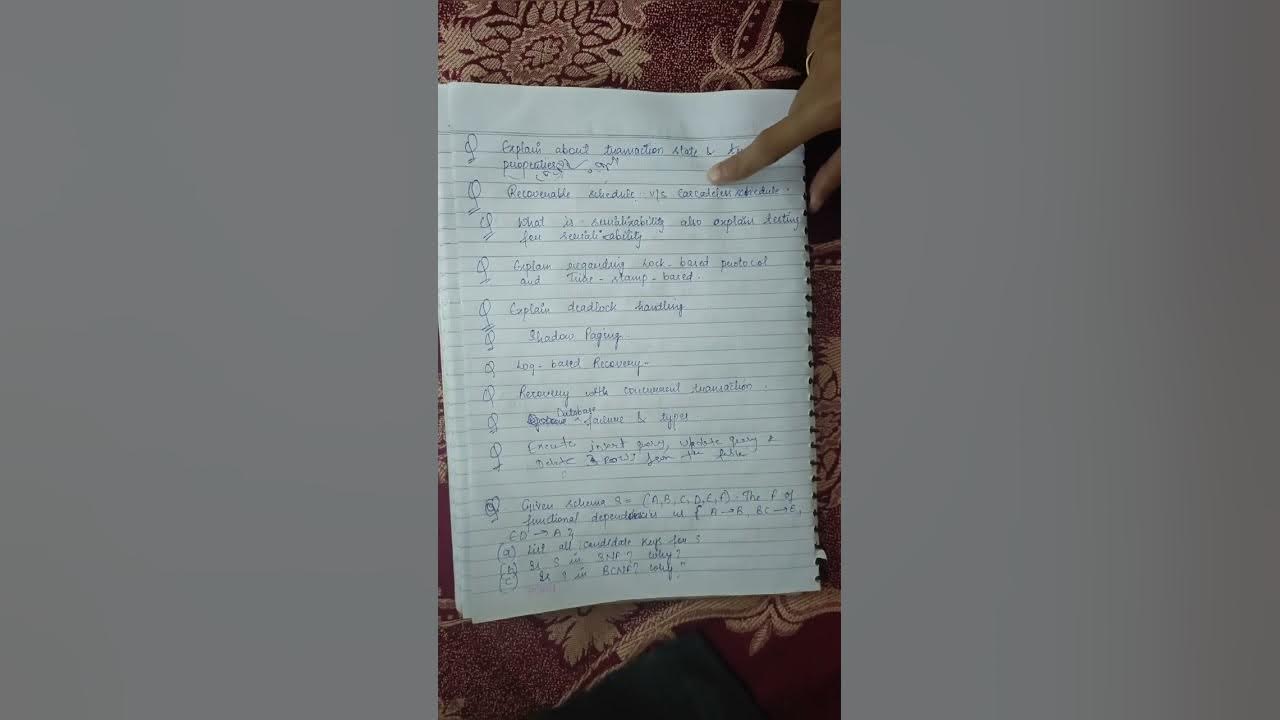 Q Explain about transaction state &
properties
Q Recoverable schedule v/s Cascadeless schedule.
Q What is serializability also explain testing
for serializability
Q Explain regarding Lock-based protocol
and Time-stamp-based.
Q Explain deadlock handling
Q Shadow Paging
Q Log-based Recovery-
Q Recovery with concurrent transaction.
Database
Q failure & types
Q Execute insert query, update query &
Delete 3 rows from the table
Q Given schema S = (A,B,C,D,E,F). The F of
functional dependencies is { A→B, BC→E,
ED→A }
(a) List all candidate keys for S
(b) Is S in 3NF? why?
(c) Is S in BCNF? why?